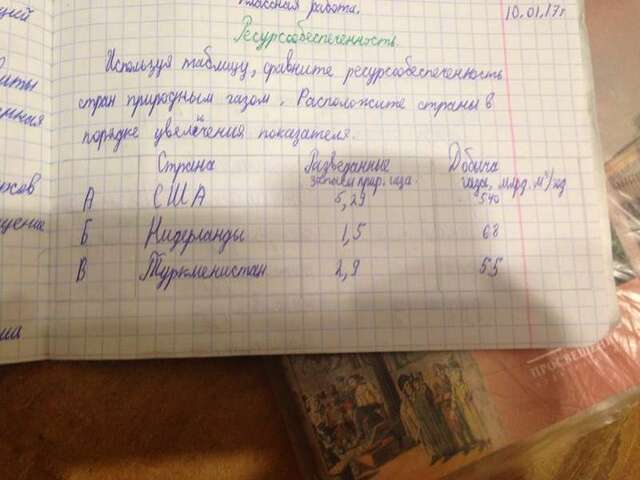 Классная работа.
10.01.17г
Ресурсообеспеченность.
Используя таблицу, сравните ресурсообеспеченность
стран природным газом. Расположите страны в
порядке увеличения показателя.
Страна Разведанные запасы прир. газа. Добыча газа, млрд. м³/год
А США 5,29 540
Б Нидерланды 1,5 68
В Туркменистан 2,9 55
щение
ПРОСВЕЩЕНИЕ